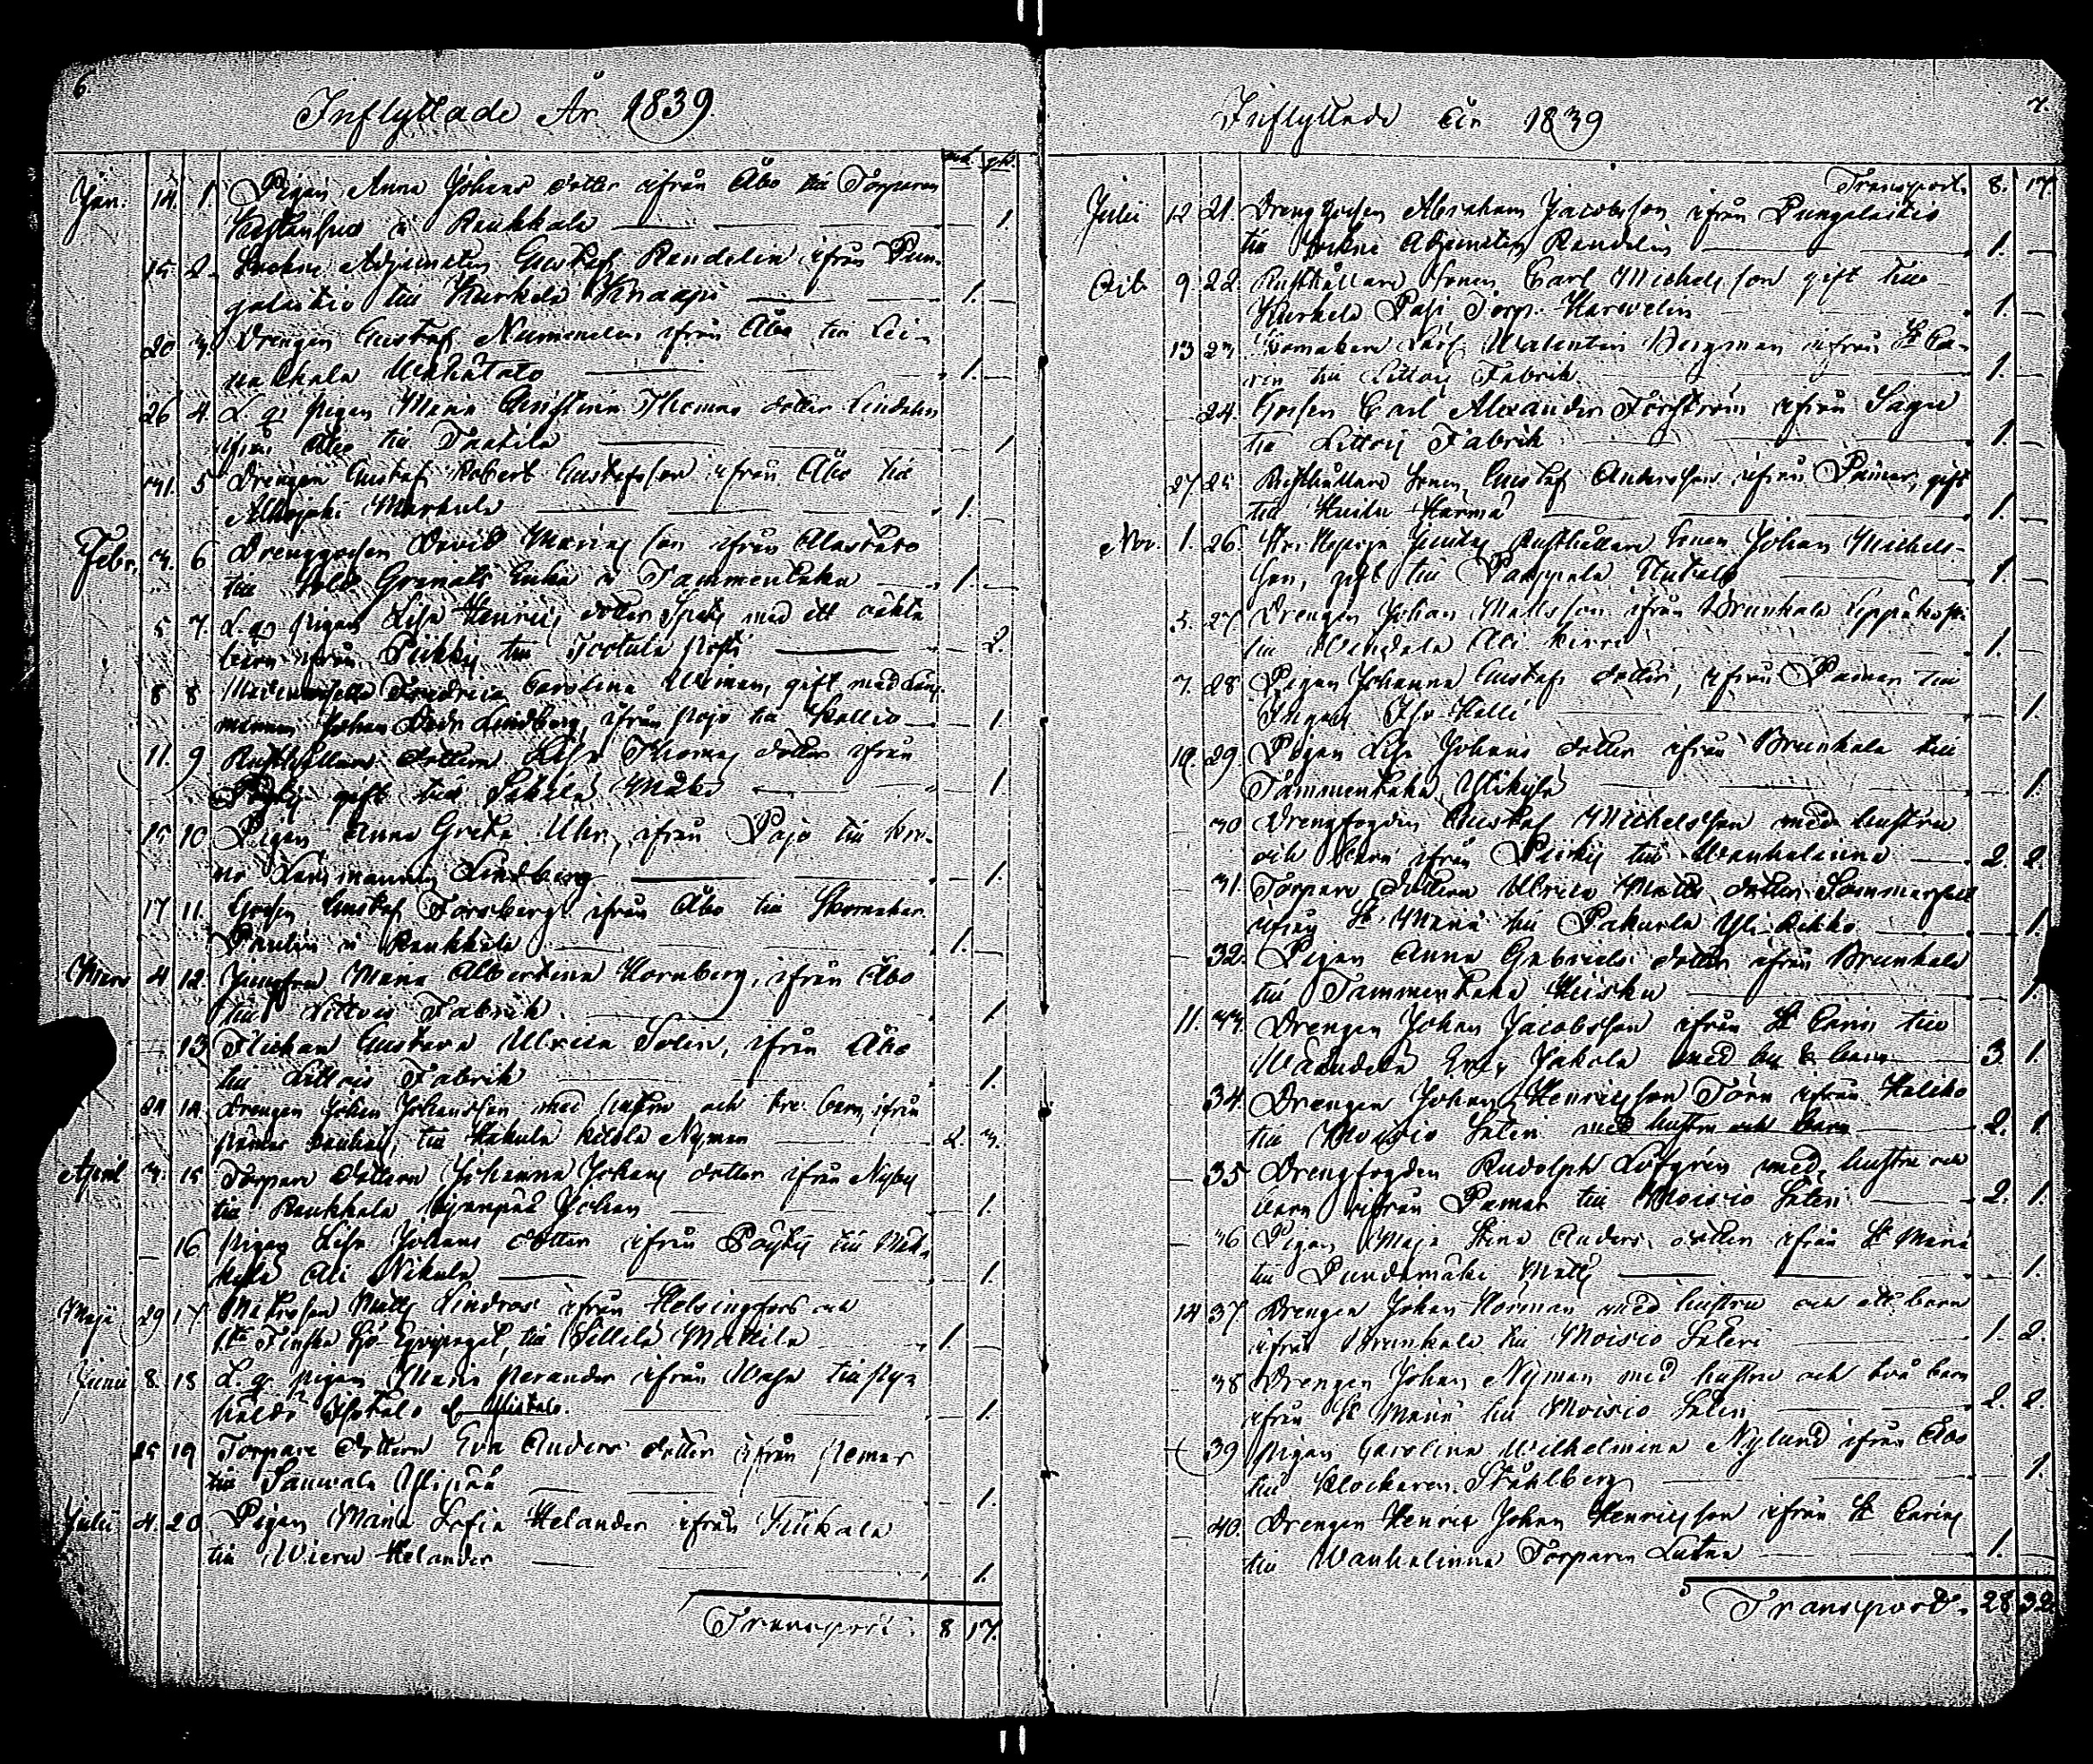 6.
Inflyttade År 1839.
mk. qk.
Jan. 14. 1. Pigan Anna Johans dotter ifrån Åbo till Torparen
i Raukkala 1.
15. 2. Adjuncten Gustaf Randelin ifrån Pun-
galaitio till Kurkela Knaapi 1.
20 3. Drengen Gustaf Nummelin ifrån Åbo till Lei-
nakkala 1.
26 4. L. q. pigan Maria Christina Thomas dotter Lindahn
ifrån Åbo till Taatila 1.
31. 5 Drengen Gustaf Robert Gustafsson ifrån Åbo till
Alhojoki Markula 1.
Febr. 3. 6 Drenggossen David Mariasson ifrån Alastaro
till Sold. Granats Enka i Tammentaka 1
5 7. L. q. pigan Lisa Henrics dotter med ett oäkta
barn ifrån Piikkis till Tootula 2.
8 8 Mademoiselle Fredrica Carolina Weman, gift med Län-
mannen Johan Lindberg ifrån Pojo till Kallio 1
11. 9 Rusthållare dottern Lisa Thomas dotter ifrån
gift till Sikilä Mäki 1
15 10 Pigan Anna Greta Uhr, ifrån Pojo till Kro-
no Länsmannen Lindberg 1.
17 11. Gossen Gustaf Forsberg ifrån Åbo till Skomakar.
Paulin i Raukkala 1.
Mars 4 12. Jungfru Maria Albertina Hornberg, ifrån Åbo
till Littois Fabrik 1
13 Flickan Gustava Ulrica Solin, ifrån Åbo
till Littois Fabrik 1.
24 14. Drengen Johan Johansson med hustru och tre barn ifrån
till Hakula Kitola Nyman 2. 3.
April 3. 15 Torpare dottern Johanna Johans dotter ifrån Nyby
till Raukkala Johan 1.
16 Pigan Lisa Johans dotter ifrån Pöytis till
Ali Nikula 1.
Maji 29 17. Matrosen Matts Lindros ifrån Helsingfors och
1:te Finska Sjö Equipaget, till Sillilä Mattila 1.
Junii 8. 18 L. q. pigan Maria ifrån Wasa till
1.
25 19 Torpare dottern Eva Anders dotter ifrån Pemar
till Sauvala Ylipää 1.
Julii 4. 20 Pigan Maria Sofia Helander ifrån Kiukala
till Wieru Helander 1.
Transport. 8 17.
7.
Inflyttade År 1839
Transport. 8. 17
Julii 12 21. Drenggossen Abraham Jacobsson ifrån Pungalaitio
till Adjuncten Randelin 1.
Octb 9. 22. Rusthållare Sonen Carl Michelsson gift till
Kurkela Pasi Torp. Harvelin 1.
13 23 Walentin Bergman ifrån St Ca-
rin till Littois Fabrik 1.
24. Gossen Carl Alexander Forsström ifrån Sagu
till Littois Fabrik 1.
27 25 Rusthållare Sonen Gustaf Andersson ifrån Pemar, gift
till Huilu Harma 1.
Nov. 1. 26. Rusthållare Sonen Johan Michels-
son, gift till Pamppala Uutalo 1
5. 27 Drengen Johan Mattsson ifrån Brunkala
till Wendala Ali Kirri 1.
7. 28 Pigan Johanna Gustafs dotter, ifrån Pemar till
Iso Kalli 1.
10. 29 Pigan Lisa Johans dotter ifrån Brunkala till
Tammentaka Ylikylä 1.
30 Drengfogden Gustaf Michelsson med hustru
och barn ifrån Piikis till Wanhalinna 2. 2.
31. Torpare dottern Ulrica Matts dotter Sommarsell
ifrån St Marie till Pakurla Yli Kikko 1.
32. Pigan Anna Gabriels dotter ifrån Brunkala
till Tammentaka Kiisku 1.
11. 33. Drengen Johan Jacobsson ifrån St Carins till
Waandela Erik Jakola med hu & barn 3 1.
34. Drengen Johan Henricsson Törn ifrån Haliko
till Moisio Säteri med hustru och barn 2. 1.
35 Drengfogden Rudolph Löfgrén med hustru och
barn ifrån Pemar till Moisio Säteri 2. 1.
36 Pigan Maja Stina Anders dotter ifrån St Marie
till Pundamäki Matts 1.
14 37. Drengen Johan Norman med hustru och ett barn
ifrån Brunkala till Moisio Säteri 1. 2.
38 Drengen Johan Nyman med hustru och två barn
ifrån St Marie till Moisio Säteri 2. 2.
39 Pigan Carolina Wilhelmina Nylund ifrån Åbo
till Klockaren Ståhlberg 1.
40. Drengen Henric Johan Henricsson ifrån St Carins
till Wanhalinna Torparen Lutan 1.
Transport. 28 32